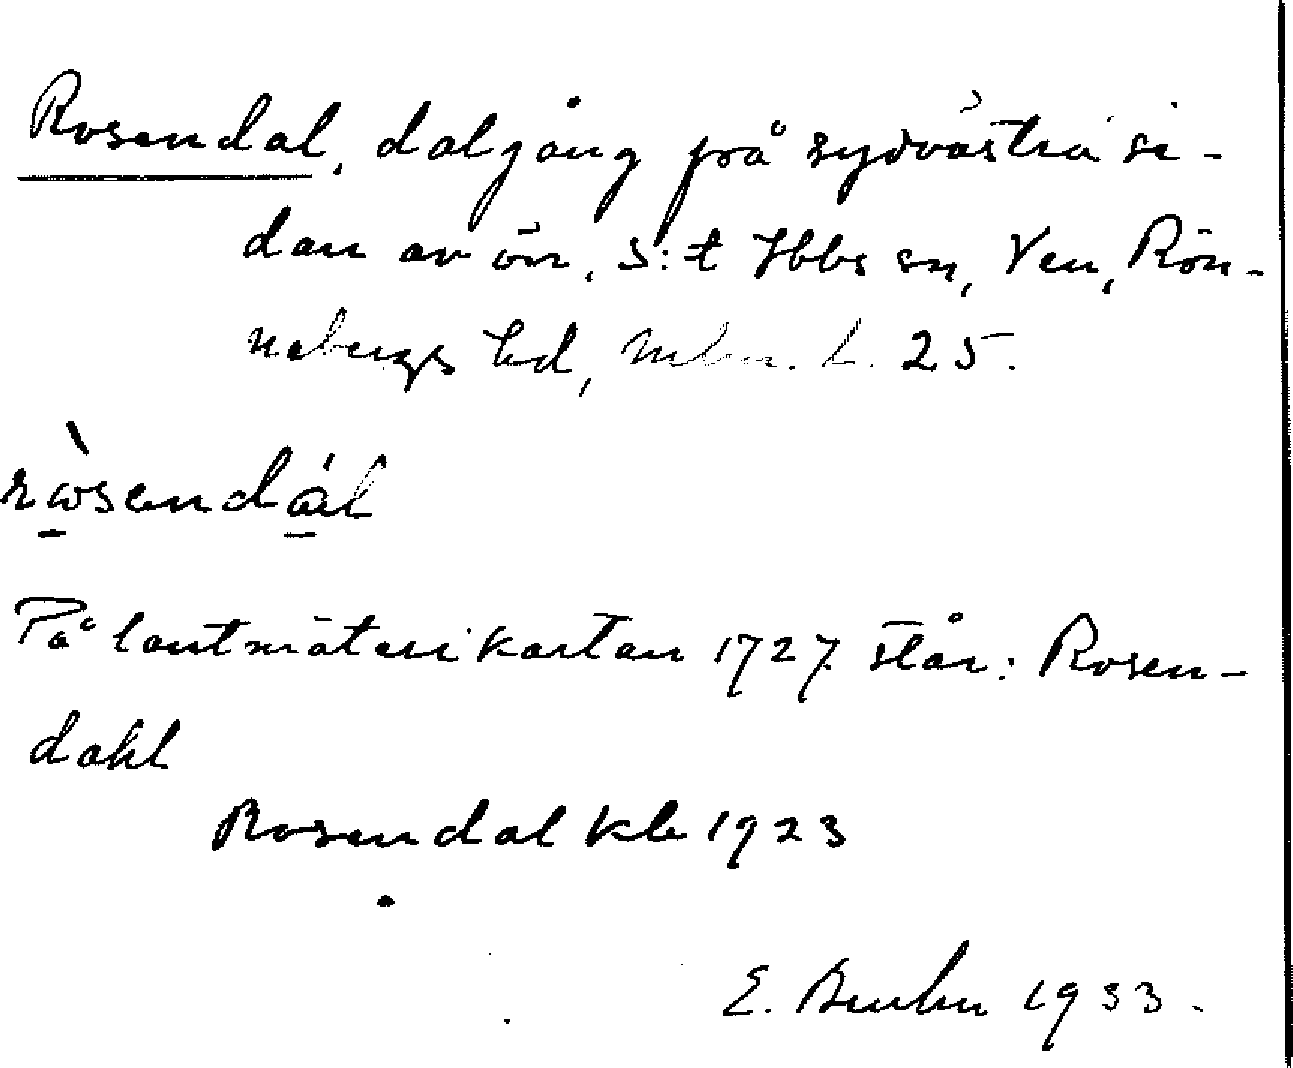 Rosendal, dalgång på sydvästra si-
dan av ön, S:t Ibbs sn, Ven, Rön-
nebergs hd, Mlm. L. 25.
ròsendál
På lantmäterikartan 1727 står: Rosen-
dahl
Rosendal kb 1923
E. Bruhn 1933.